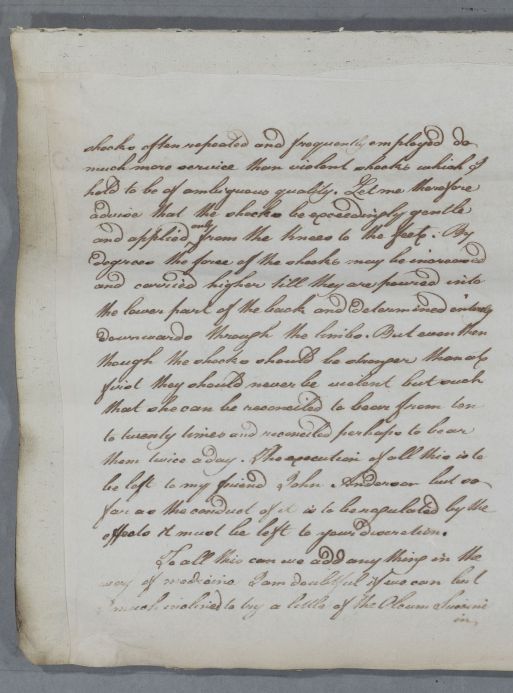 shocks often repeated and frequently employed do
much more service than violent shocks which I
hold to be of ambiguous quality. Let me therefore
advise that the shocks be exceedingly gentle
and applied only from the knees to the feet. By
degrees the force of the shocks may be increased
and carried higher till they are poured into
the lower part of the back and determined intirely
downwards through the limbs. But even then
though the shocks should be stronger than at
first they should never be violent but such
that she can be reconciled to bear from ten
to twenty times and reconciled perhaps to bear
them twice a day. The execution of all this is to
be left to my friend John Anderson but so
far as the conduct of it is to be regulated by the
effects it must be left to your discretion.
To all this can we add any thing in the
way of medicine I am doubtful if we can but
I much inclined to try a little of the Oleum
in